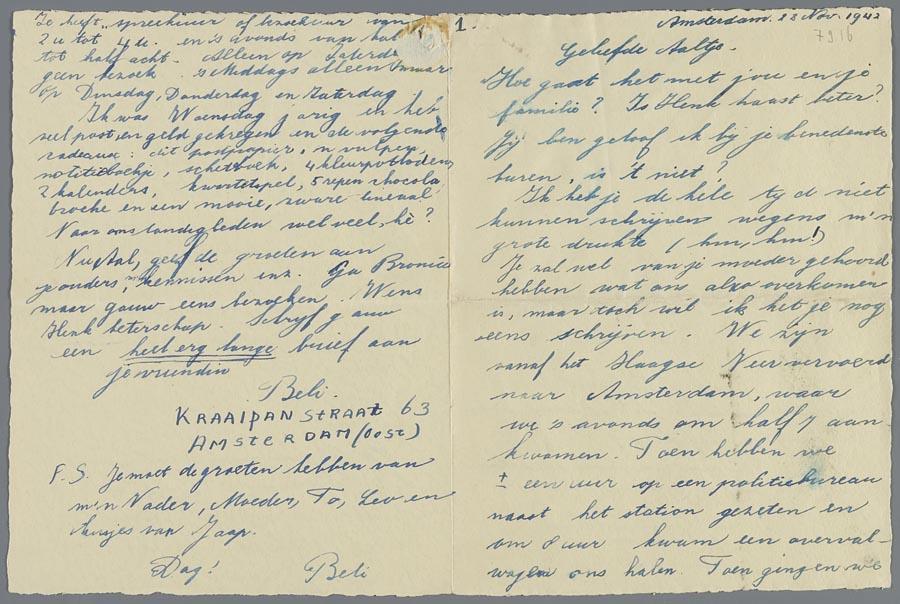 1.
Amsterdam. 28 Nov. 1942
7916
Geliefde Aaltje.
Hoe gaat het met jou en je
familie? Is Henk haast beter?
Jij ben geloof ik bij je benedenste
buren, is 't niet?
Ik heb je de hele tyd niet
kunnen schrijven wegens m'n
grote drukte (hm, hm!)
Je zal wel van je moeder gehoord
hebben wat ons alzo overkomen
is, maar toch wil ik het je nog
eens schrijven. We zijn
vanaf het Haagse Veer vervoerd
naar Amsterdam, waar
we 's avonds om half 7 aan-
kwamen. Toen hebben we
± een uur op een politiebureau
naast het station gezeten en
om 8 uur kwam een overval-
wagen ons halen. Toen gingen we
Je heeft spreekuur of bezoekuur van
2 u tot 4 u. en 's avonds van half
tot half acht. Alleen op Zaterda
geen bezoek. 's middags alleen
op Dinsdag, Donderdag en Zaterdag
Ik was Woensdag jarig en heb
veel post en geld gekregen en de volgende
cadeaux: dit postpapier, 'n vulpen,
notitieboekje, schetsboek, 4 kleurpotloden,
2 kalenders, kwartetspel, 5 repen chocola
broche en een mooie, zware lineaal
Naar omstandigheden wel veel, hè?
Nu Aal, geef de groeten aan
je ouders, kennissen enz. Ga Bronia
maar gauw eens bezoeken. Wens
Henk beterschap. Schrijf gauw
een heel erg lange brief aan
je vriendin
Beli.
KRAAIPANSTRAAT 63
AMSTERDAM (OOST)
P.S. Je moet de groeten hebben van
m'n Vader, Moeder, To, Leo en
kusjes van Jaap.
Dag! Beli